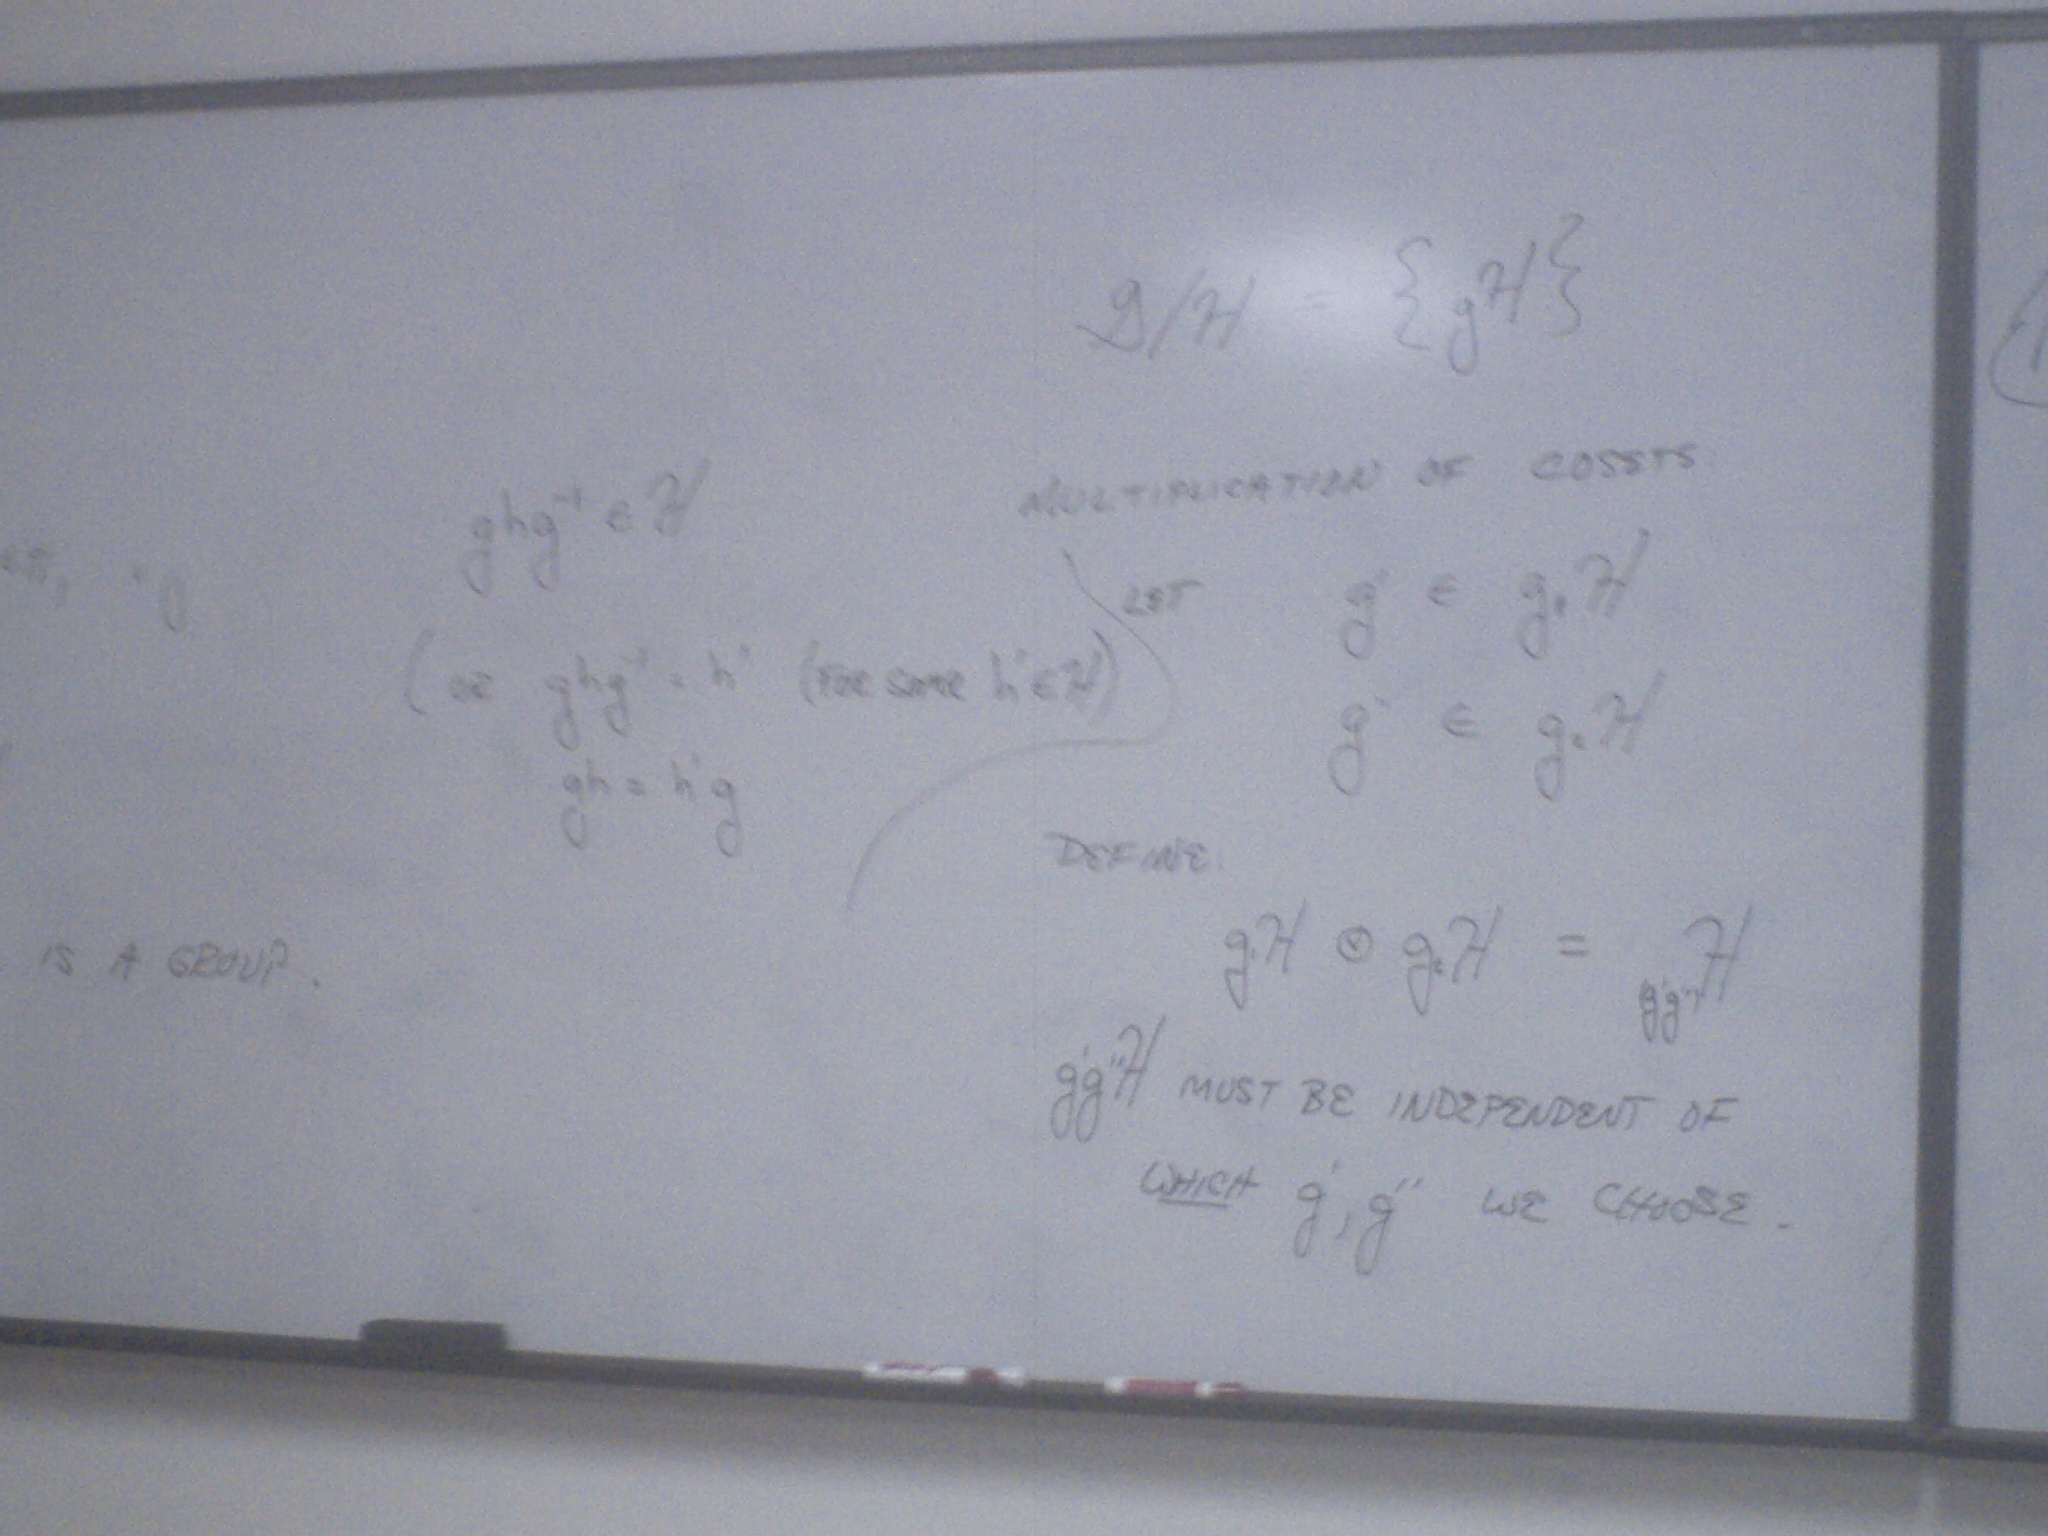 ghg⁻¹ ∈ H
(OR ghg⁻¹ = h' (FOR SOME h' ∈ H)
gh = h'g
IS A GROUP.
G/H = {gH}
MULTIPLICATION OF COSETS
LET g' ∈ g₁H
g'' ∈ g₂H
DEFINE:
g₁H ⊗ g₂H = g'g''H
g'g''H MUST BE INDEPENDENT OF
WHICH g', g'' WE CHOOSE.